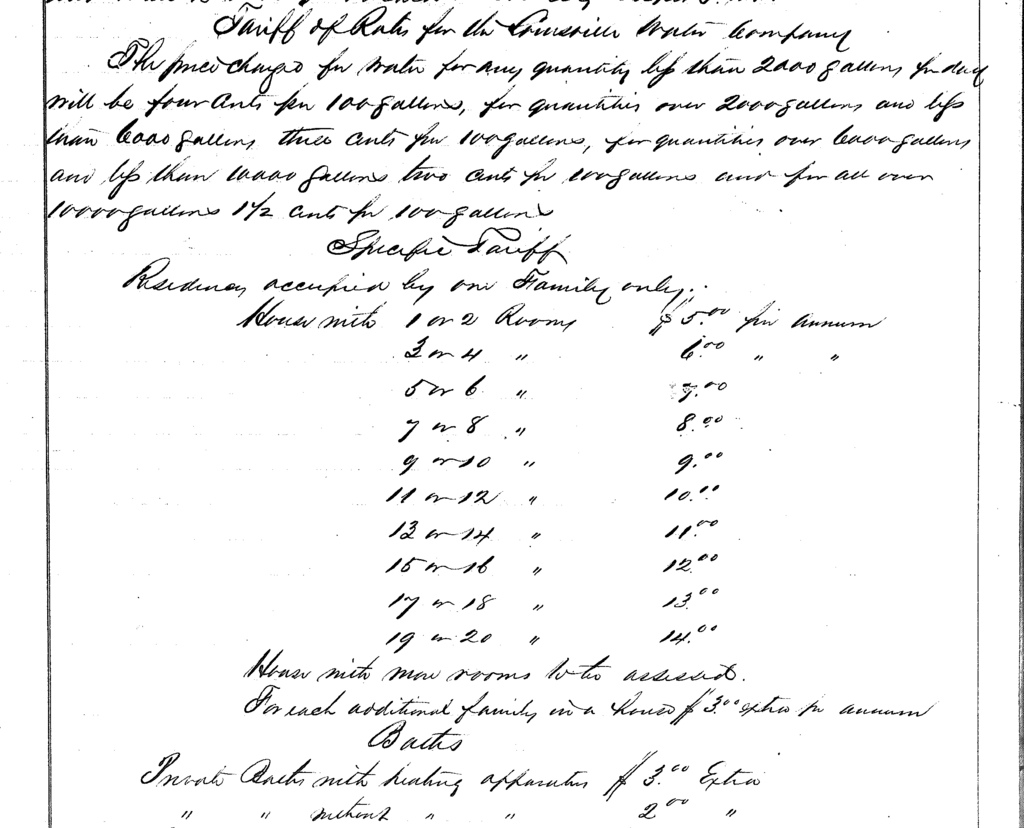 Tariff of Rates for the Louisville Water Company
The price charged for water for any quantity less than 2000 gallons per day
will be four Cents per 100 gallons, for quantities over 2000 gallons and less
than 6000 gallons three cents per 100 gallons, for quantities over 6000 gallons
and less than 10000 gallons two cents per 100 gallons and for all over
10000 gallons 1 1/2 cents per 100 gallons
Specific Tariff
Residences occupied by one Family only.
House with 1 or 2 Rooms $5.00 per annum
3 or 4 " 6.00 " "
5 or 6 " 7.00
7 or 8 " 8.00
9 or 10 " 9.00
11 or 12 " 10.00
13 or 14 " 11.00
15 or 16 " 12.00
17 or 18 " 13.00
19 or 20 " 14.00
House with more rooms to be assessed.
For each additional family in a house $3.00 extra per annum
Baths
Private Baths with heating apparatus $3.00 Extra
" " without " " 2.00 "